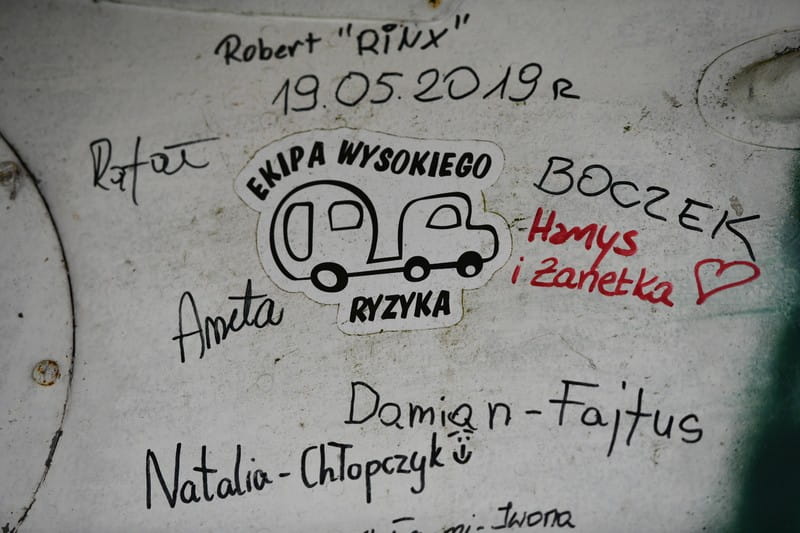 Robert "RINX"
19.05.2019 R
Rafał
EKIPA WYSOKIEGO
RYZYKA
BOCZEK
Hanys
i Żanetka
Aneta
Damian-Fajtus
Natalia-Chłopczyk
Iwona